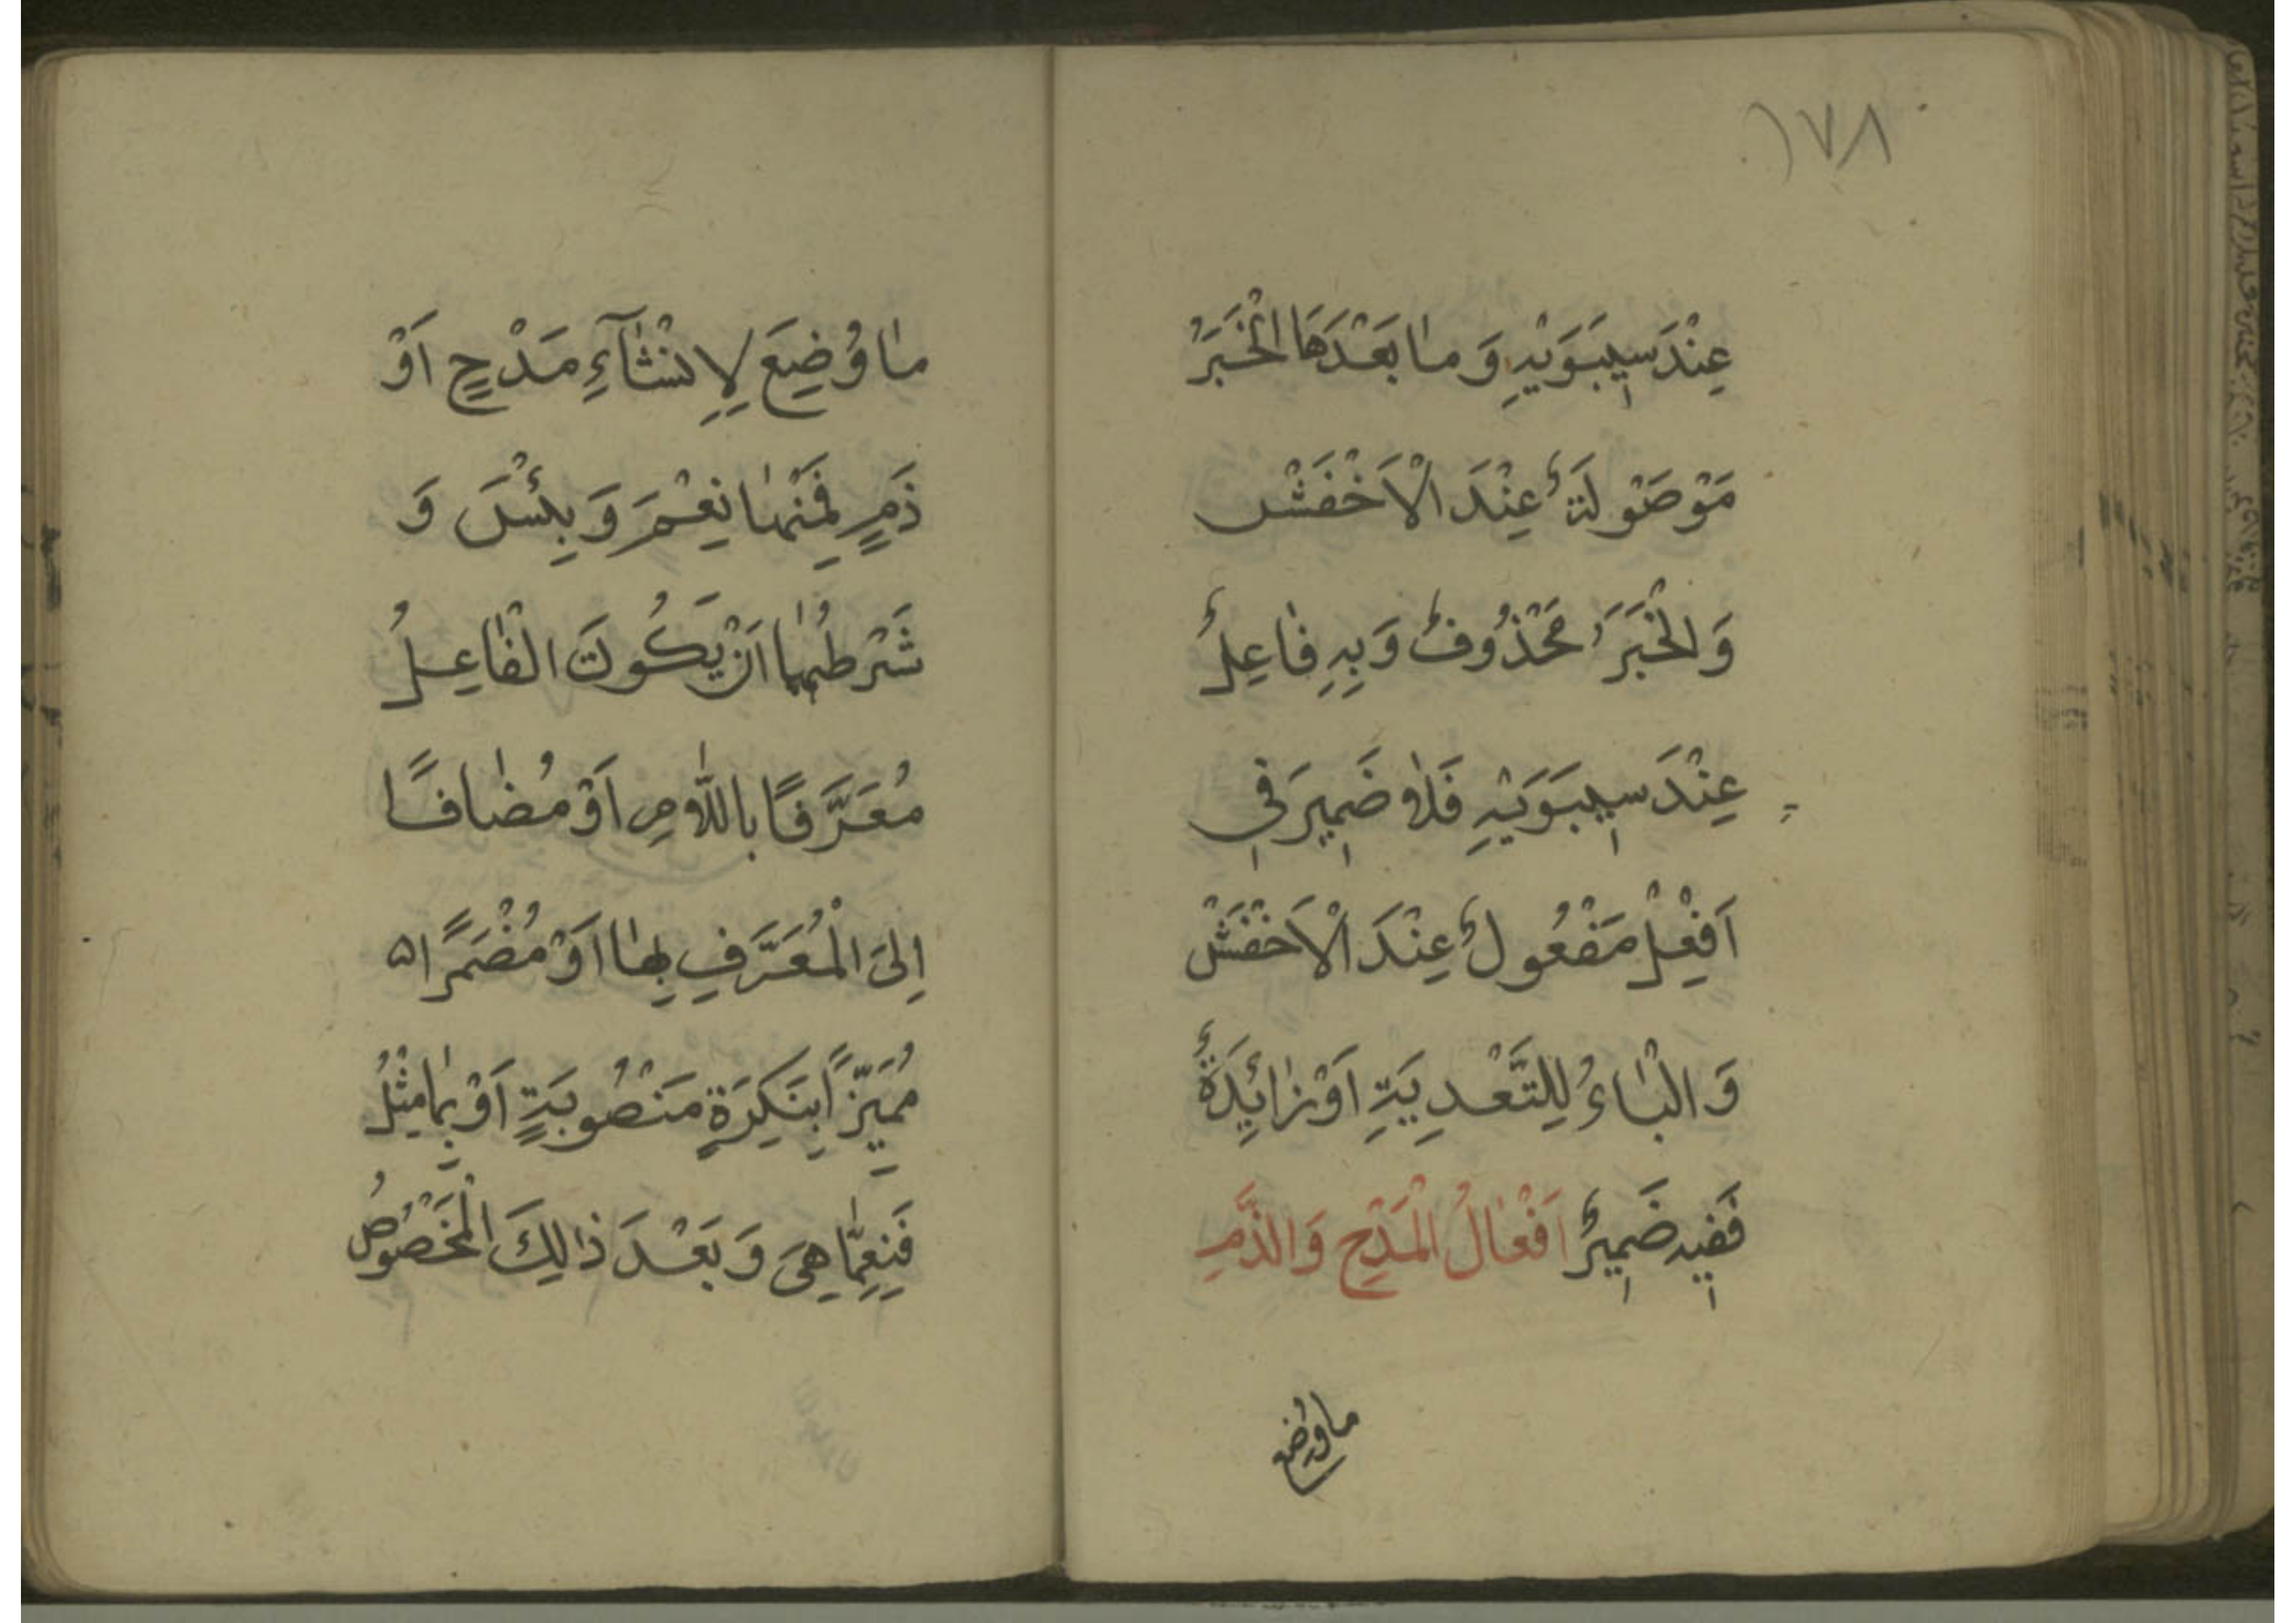 ١٧٨
عِنْدَ سِيبَوَيْهِ وَمٰا بَعْدَهَا الْخَبَرُ
مَوْصَوْلَةٌ عِنْدَ الْاَخْفَشْ
وَالْخَبَرَُ مَحْذُوفٌ وَبِهِ فٰاعِلٌ
عِنْدَ سِيبَوَيْهِ فَلاٰ ضَمِيرَ فِي
اَفْعِلْ مَفْعُولٌ عِنْدَ الْاَخْفَشْ
وَالْبٰاءُ لِلتَّعْدِيَةِ اَوْ زٰائِدَةٌ
فَفِيهِ ضَمِيرٌ اَفْعٰالُ الْمَدْحِ وَالذَّمِ
ماوُضِع
مٰا وُضِعَ لِاِنْشٰٓاءِ مَدْحٍ اَوْ
ذَمٍ فَمِنْهٰا نِعْمَ وَبِئْسَ وَ
شَرْطُهُمٰا اَنْ يَكُونَ الْفٰاعِلُ
مُعَرَّفًا بِاللّاٰمِ اَوْ مُضٰافًا
اِلَى الْمُعَرَّفِ بِهٰا اَوْ مُضْمَرًا
مُمَيَّزًا بِنَكِرَةٍ مَنْصُوبَةٍ اَوْ بِمٰا مِثْلُ
فَنِعِمّٰا هِيَ وَبَعْدَ ذٰلِكَ الْمَخْصُوصُ